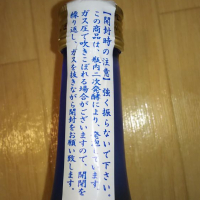 【開封時の注意】強く振らないで下さい。
この商品は、瓶内二次発酵により、発泡しています。
ガス圧で吹きこぼれる場合がございますので、開閉を
繰り返し、ガスを抜きながら開封をお願い致します。